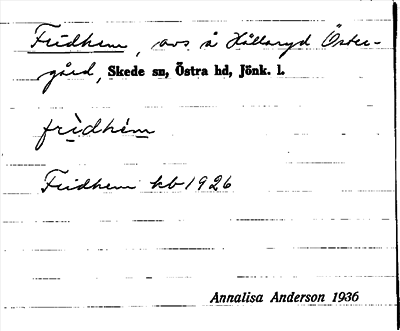 Fridhem, avs. å Hållaryd Öster-
gård, Skede sn, Östra hd, Jönk. l.
frìdhém
Fridhem kb 1926
Annalisa Anderson 1936